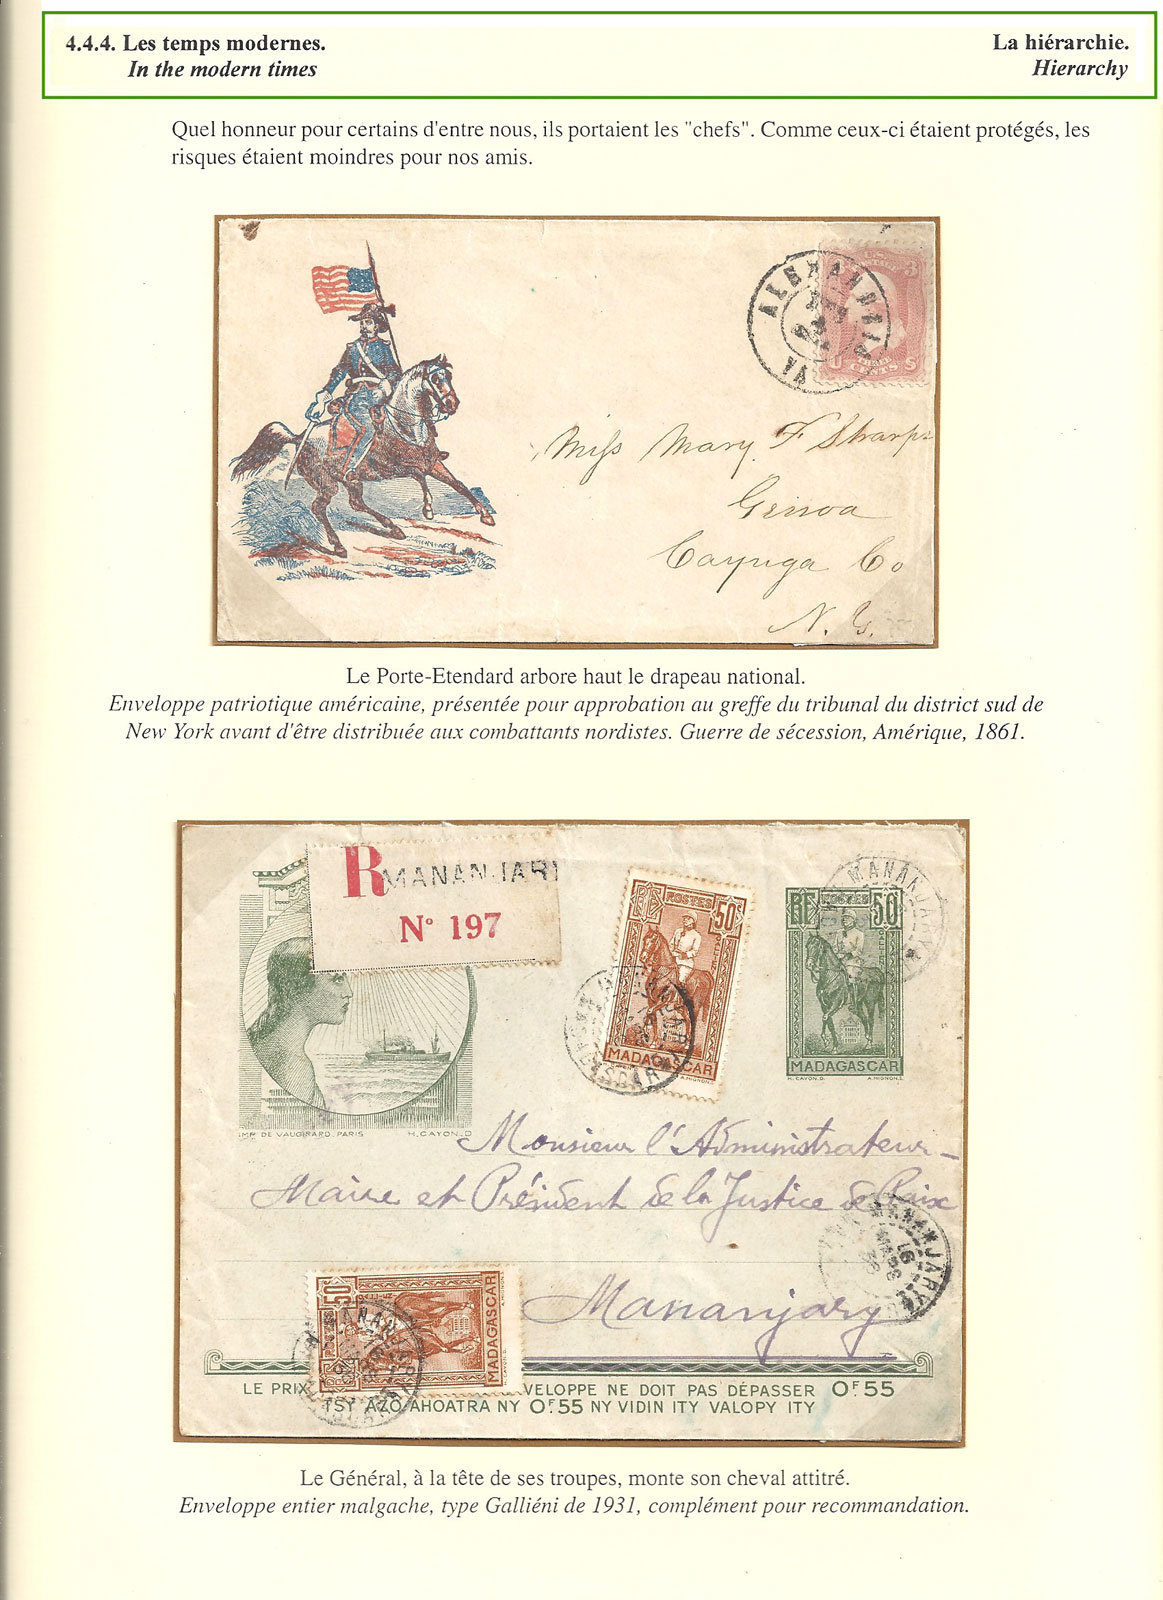 4.4.4. Les temps modernes.
In the modern times
La hiérarchie.
Hierarchy
Quel honneur pour certains d'entre nous, ils portaient les "chefs". Comme ceux-ci étaient protégés, les
risques étaient moindres pour nos amis.
ALEXANDRIA
VA
3
CENTS
Miss Mary F Sharps
Genoa
Cayuga Co
N. Y.
Le Porte-Etendard arbore haut le drapeau national.
Enveloppe patriotique américaine, présentée pour approbation au greffe du tribunal du district sud de
New York avant d'être distribuée aux combattants nordistes. Guerre de sécession, Amérique, 1861.
R MANANJARY
N° 197
RF POSTES 50c
MADAGASCAR
RF 50c
MANANJARY
MADAGASCAR
H. CAYON. D. A. MIGNON. S.
IMP. DE VAUGIRARD. PARIS H. CAYON. D
Monsieur l'Administrateur-
Maire et Président de la Justice de Paix
Mananjary
MANANJARY
16
MARS
50c
POSTES
MADAGASCAR
LE PRIX VELOPPE NE DOIT PAS DÉPASSER 0F55
TSY AZO AHOATRA NY 0F.55 NY VIDIN ITY VALOPY ITY
Le Général, à la tête de ses troupes, monte son cheval attitré.
Enveloppe entier malgache, type Galliéni de 1931, complément pour recommandation.